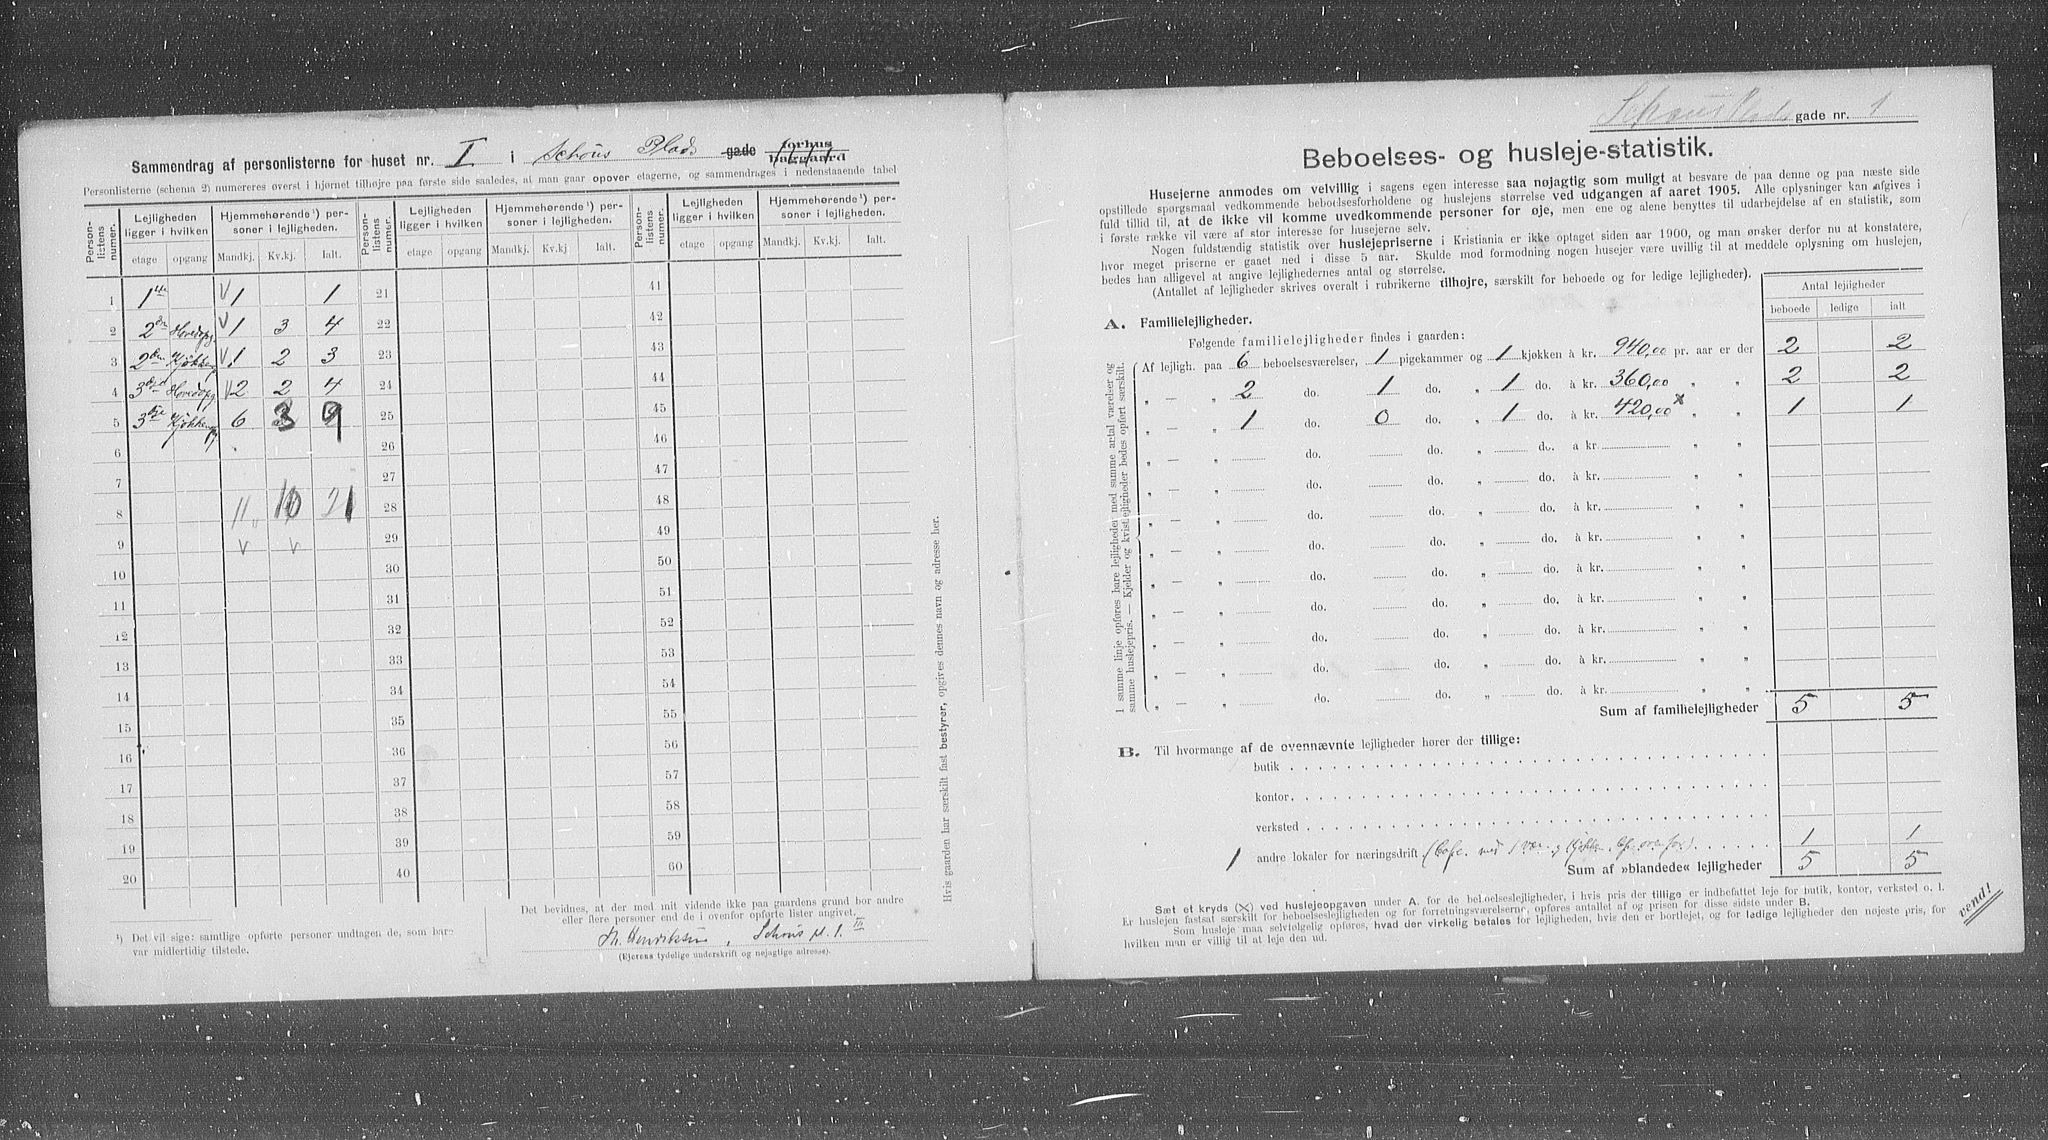 Sammendrag af personlisterne for huset nr. I i Schous Plads gade forhus baggaard
Personlisterne (schema 2) numereres øverst i hjørnet tilhøjre paa første side saaledes, at man gaar opover etagerne, og sammendrages i nedenstaaende tabel
Person-listens numer. Lejligheden ligger i hvilken Hjemmehørende¹) personer i lejligheden. Person-listens numer. Lejligheden ligger i hvilken Hjemmehørende¹) personer i lejligheden. Person-listens numer. Lejligheden ligger i hvilken Hjemmehørende¹) personer i lejligheden.
etage opgang Mandkj. Kv.kj. Ialt. etage opgang Mandkj. Kv.kj. Ialt. etage opgang Mandkj. Kv.kj. Ialt.
1 1ste √1 1 21 41
2 2den Hovedopg √1 3 4 22 42
3 2den Kjøkkenopg √1 2 3 23 43
4 3die Hovedopg √2 2 4 24 44
5 3die Kjøkkenopg 6 3 9 25 45
6 26 46
7 27 47
8 11 10 21 28 48
9 v v 29 49
10 30 50
11 31 51
12 32 52
13 33 53
14 34 54
15 35 55
16 36 56
17 37 57
18 38 58
19 39 59
20 40 60
Hvis gaarden har særskilt fast bestyrer, opgives dennes navn og adresse her.
¹) Det vil sige: samtlige opførte personer undtagen de, som bare
var midlertidig tilstede.
Det bevidnes, at der med mit vidende ikke paa gaardens grund bor andre
eller flere personer end de i ovenfor opførte lister angivet.
Th. Henriksen, Schous pl. 1. III
(Ejerens tydelige underskrift og nøjagtige adresse).
Schous Plads gade nr. 1
Beboelses- og husleje-statistik.
Husejerne anmodes om velvillig i sagens egen interesse saa nøjagtig som muligt at besvare de paa denne og paa næste side
opstillede spørgsmaal vedkommende beboelsesforholdene og huslejens størrelse ved udgangen af aaret 1905. Alle oplysninger kan afgives i
fuld tillid til, at de ikke vil komme uvedkommende personer for øje, men ene og alene benyttes til udarbejdelse af en statistik, som
i første række vil være af stor interesse for husejerne selv.
Nogen fuldstændig statistik over huslejepriserne i Kristiania er ikke optaget siden aar 1900, og man ønsker derfor nu at konstatere,
hvor meget priserne er gaaet ned i disse 5 aar. Skulde mod formodning nogen husejer være uvillig til at meddele oplysning om huslejen,
bedes han alligevel at angive lejlighedernes antal og størrelse.
(Antallet af lejligheder skrives overalt i rubrikerne tilhøjre, særskilt for beboede og for ledige lejligheder).
Antal lejligheder
beboede ledige ialt
A. Familielejligheder.
Følgende familielejligheder findes i gaarden:
I samme linje opføres bare lejligheder med samme antal værelser og
samme huslejepris. — Kjelder og kvistlejligheder bedes opført særskilt.
Af lejligh. paa 6 beboelsesværelser, 1 pigekammer og 1 kjøkken à kr. 940,00 pr. aar er der 2 2
„ — „ 2 do. 1 do. „ 1 do. à kr. 360,00 „ „ 2 2
„ — „ 1 do. 0 do. „ 1 do. à kr. 420,00 x „ „ 1 1
„ — „ do. do. „ do. a kr. „ „
„ — „ do. do. „ do. à kr. „ „
„ — „ do. do. „ do. à kr. „ „
„ — „ do. do. „ do. à kr. „ „
„ — „ do. do. „ do. à kr. „ „
„ — „ do. do. „ do. à kr. „ „
„ — „ do. do. „ do. à kr. „ „
„ — „ do. do. „ do. à kr. „ „
„ — „ do. do. „ do. à kr. „ „
Sum af familielejligheder 5 5
B. Til hvormange af de ovennævnte lejligheder hører der tillige:
butik
kontor
verksted
1 andre lokaler for næringsdrift (Cafe. med 1 vær. og Kjøkken. ovenfor) 1 1
Sum af »blandede« lejligheder 5 5
Sæt et kryds (×) ved huslejeopgaven under A. for de beboelseslejligheder, i hvis pris der tillige er indbefattet leje for butik, kontor, verksted o. l.
Er huslejen fastsat særskilt for beboelseslejligheden og for forretningsværelserne, opføres antallet af og prisen for disse sidste under B.
Som husleje maa selvfølgelig opføres, hvad der virkelig betales for lejligheden, hvis den er bortlejet, og for ledige lejligheder den nøjeste pris, for
hvilken man er villig til at leje den ud.
vend!